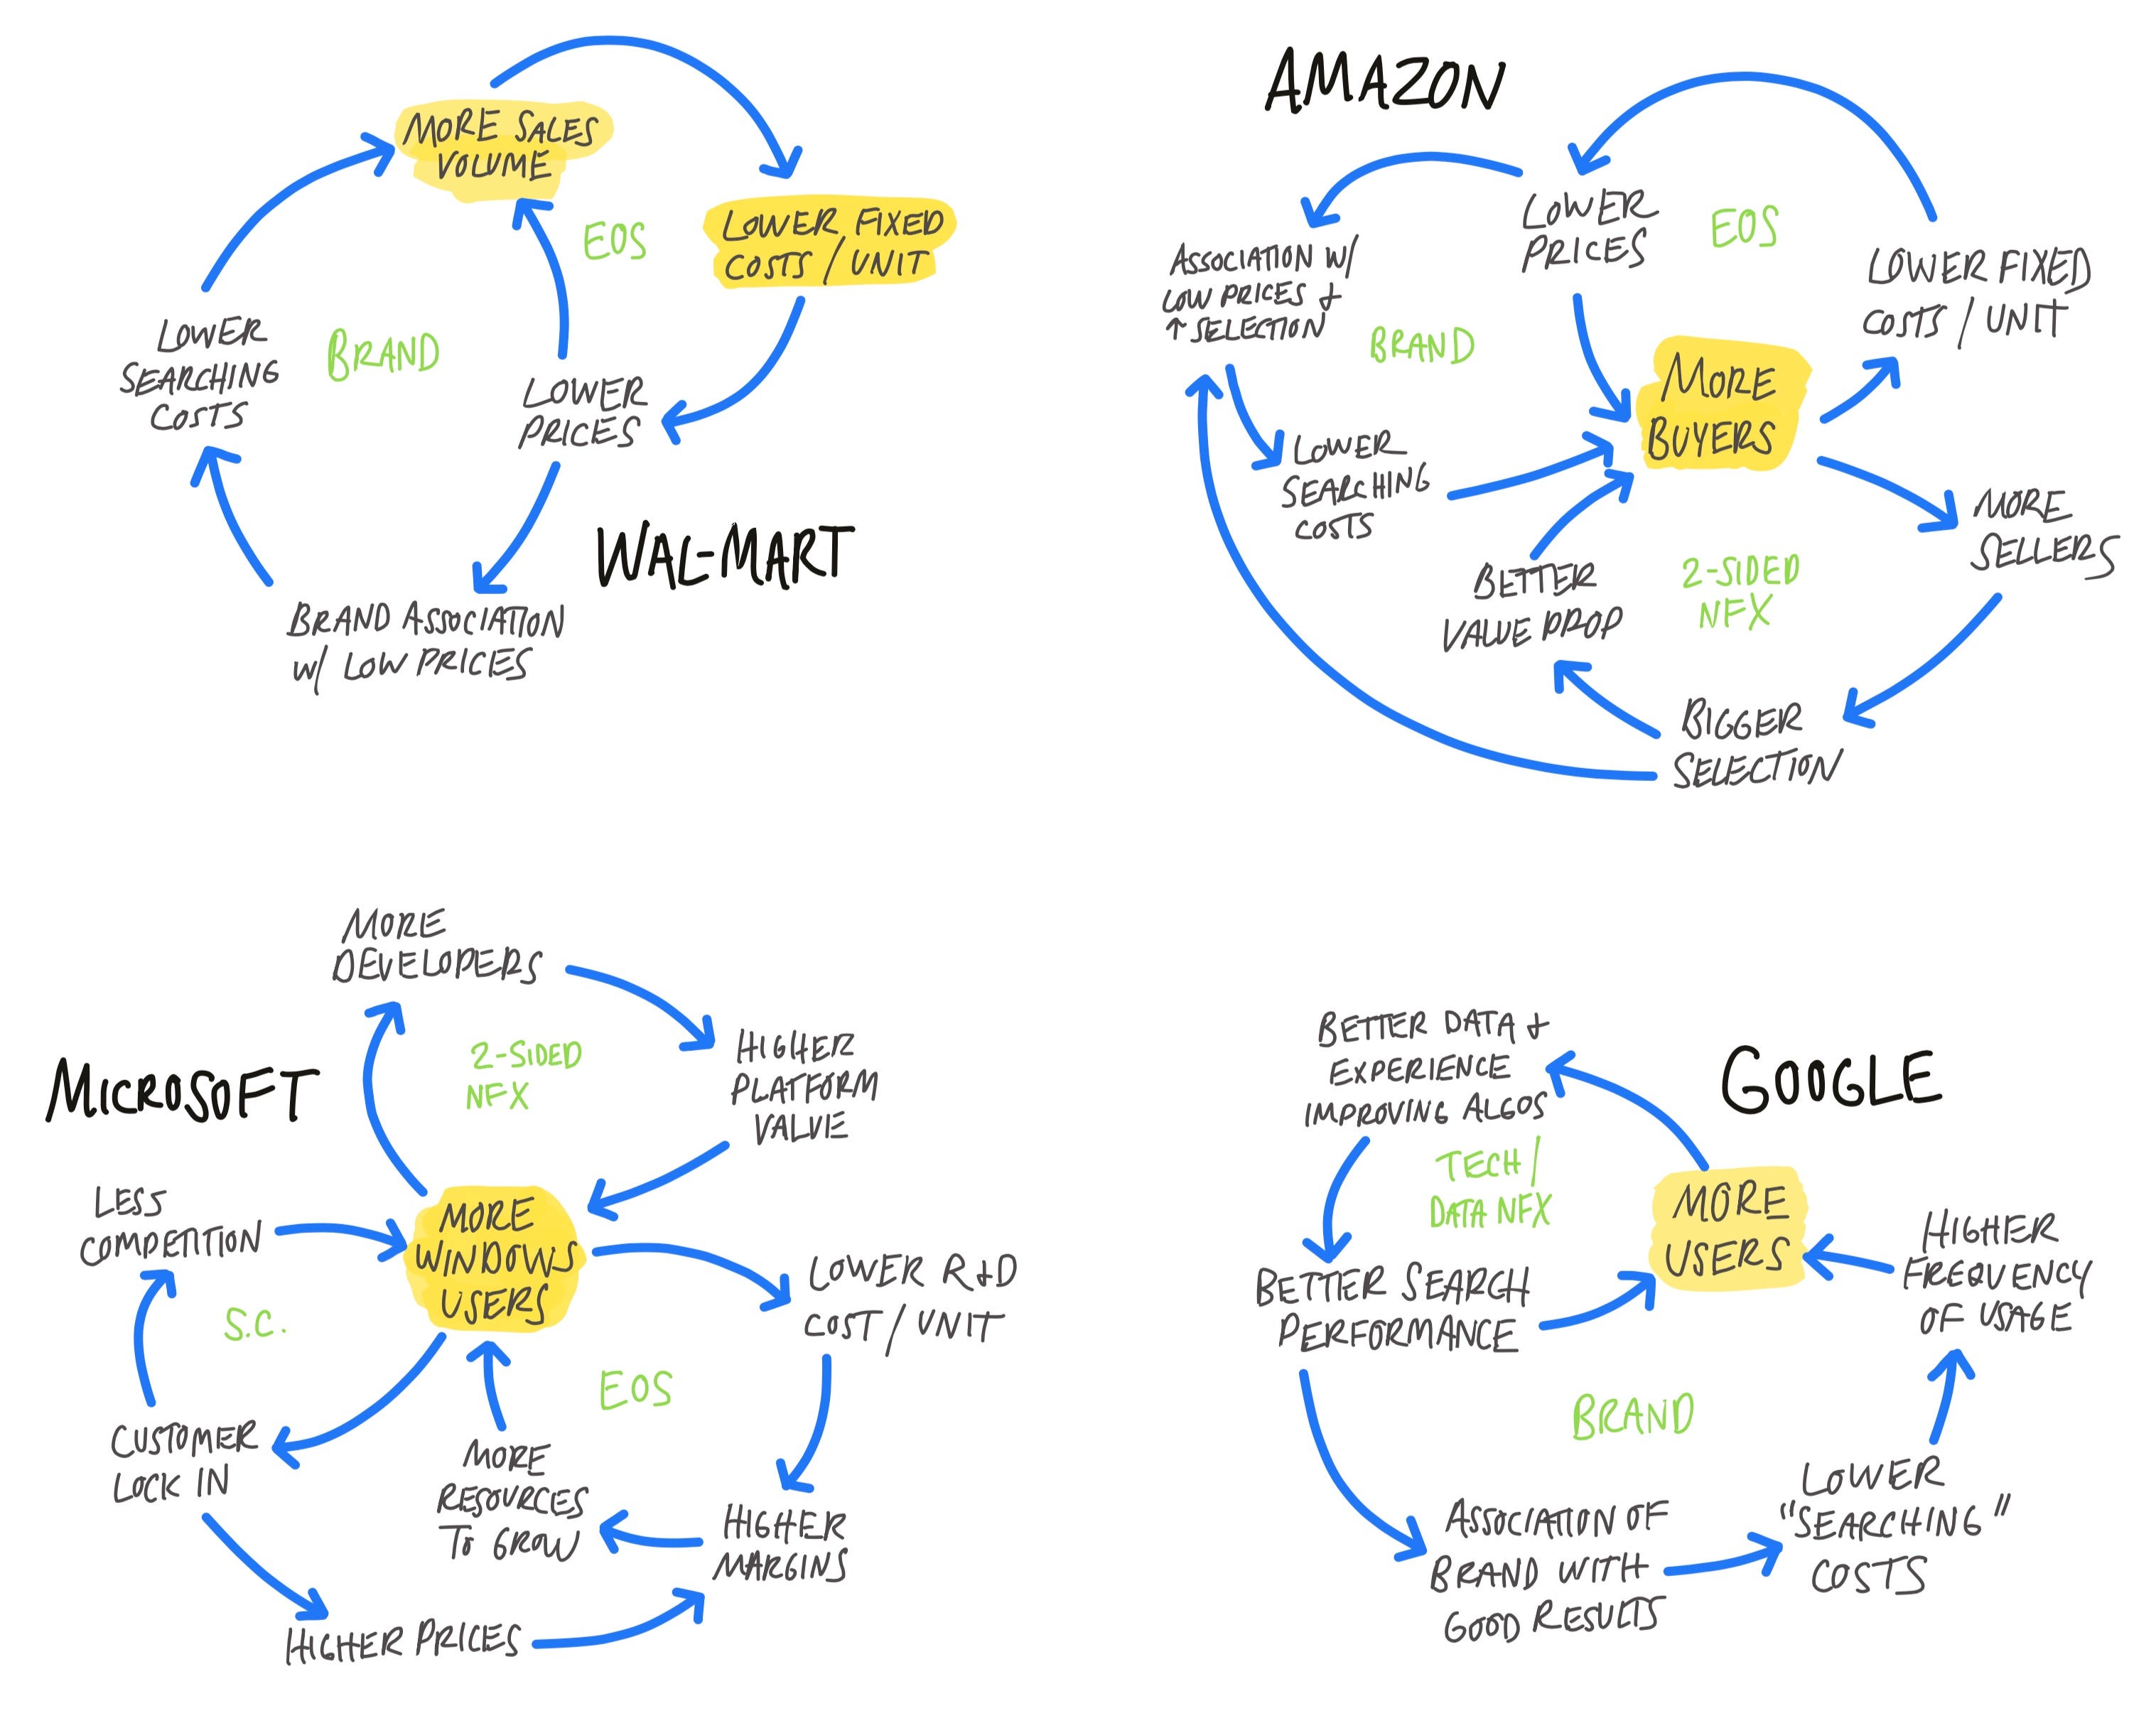 MORE SALES
VOLUME
LOWER FIXED
COSTS / UNIT
EOS
BRAND
LOWER
SEARCHING
COSTS
LOWER
PRICES
WAL-MART
BRAND ASSOCIATION
W/ LOW PRICES
AMAZON
LOWER
PRICES
EOS
ASSOCIATION W/
LOW PRICES +
↑ SELECTION
LOWER FIXED
COSTS / UNIT
BRAND
MORE
BUYERS
LOWER
SEARCHING
COSTS
MORE
SELLERS
BETTER
VALUE PROP
2-SIDED
NFX
BIGGER
SELECTION
MORE
DEVELOPERS
MICROSOFT
2-SIDED
NFX
HIGHER
PLATFORM
VALUE
LESS
COMPETITION
MORE
WINDOWS
USERS
LOWER R+D
COST / UNIT
S.C.
EOS
CUSTOMER
LOCK IN
MORE
RESOURCES
TO GROW
HIGHER
MARGINS
HIGHER PRICES
BETTER DATA +
EXPERIENCE
IMPROVING ALGOS
GOOGLE
TECH /
DATA NFX
MORE
USERS
HIGHER
FREQUENCY
OF USAGE
BETTER SEARCH
PERFORMANCE
BRAND
ASSOCIATION OF
BRAND WITH
GOOD RESULTS
LOWER
"SEARCHING"
COSTS